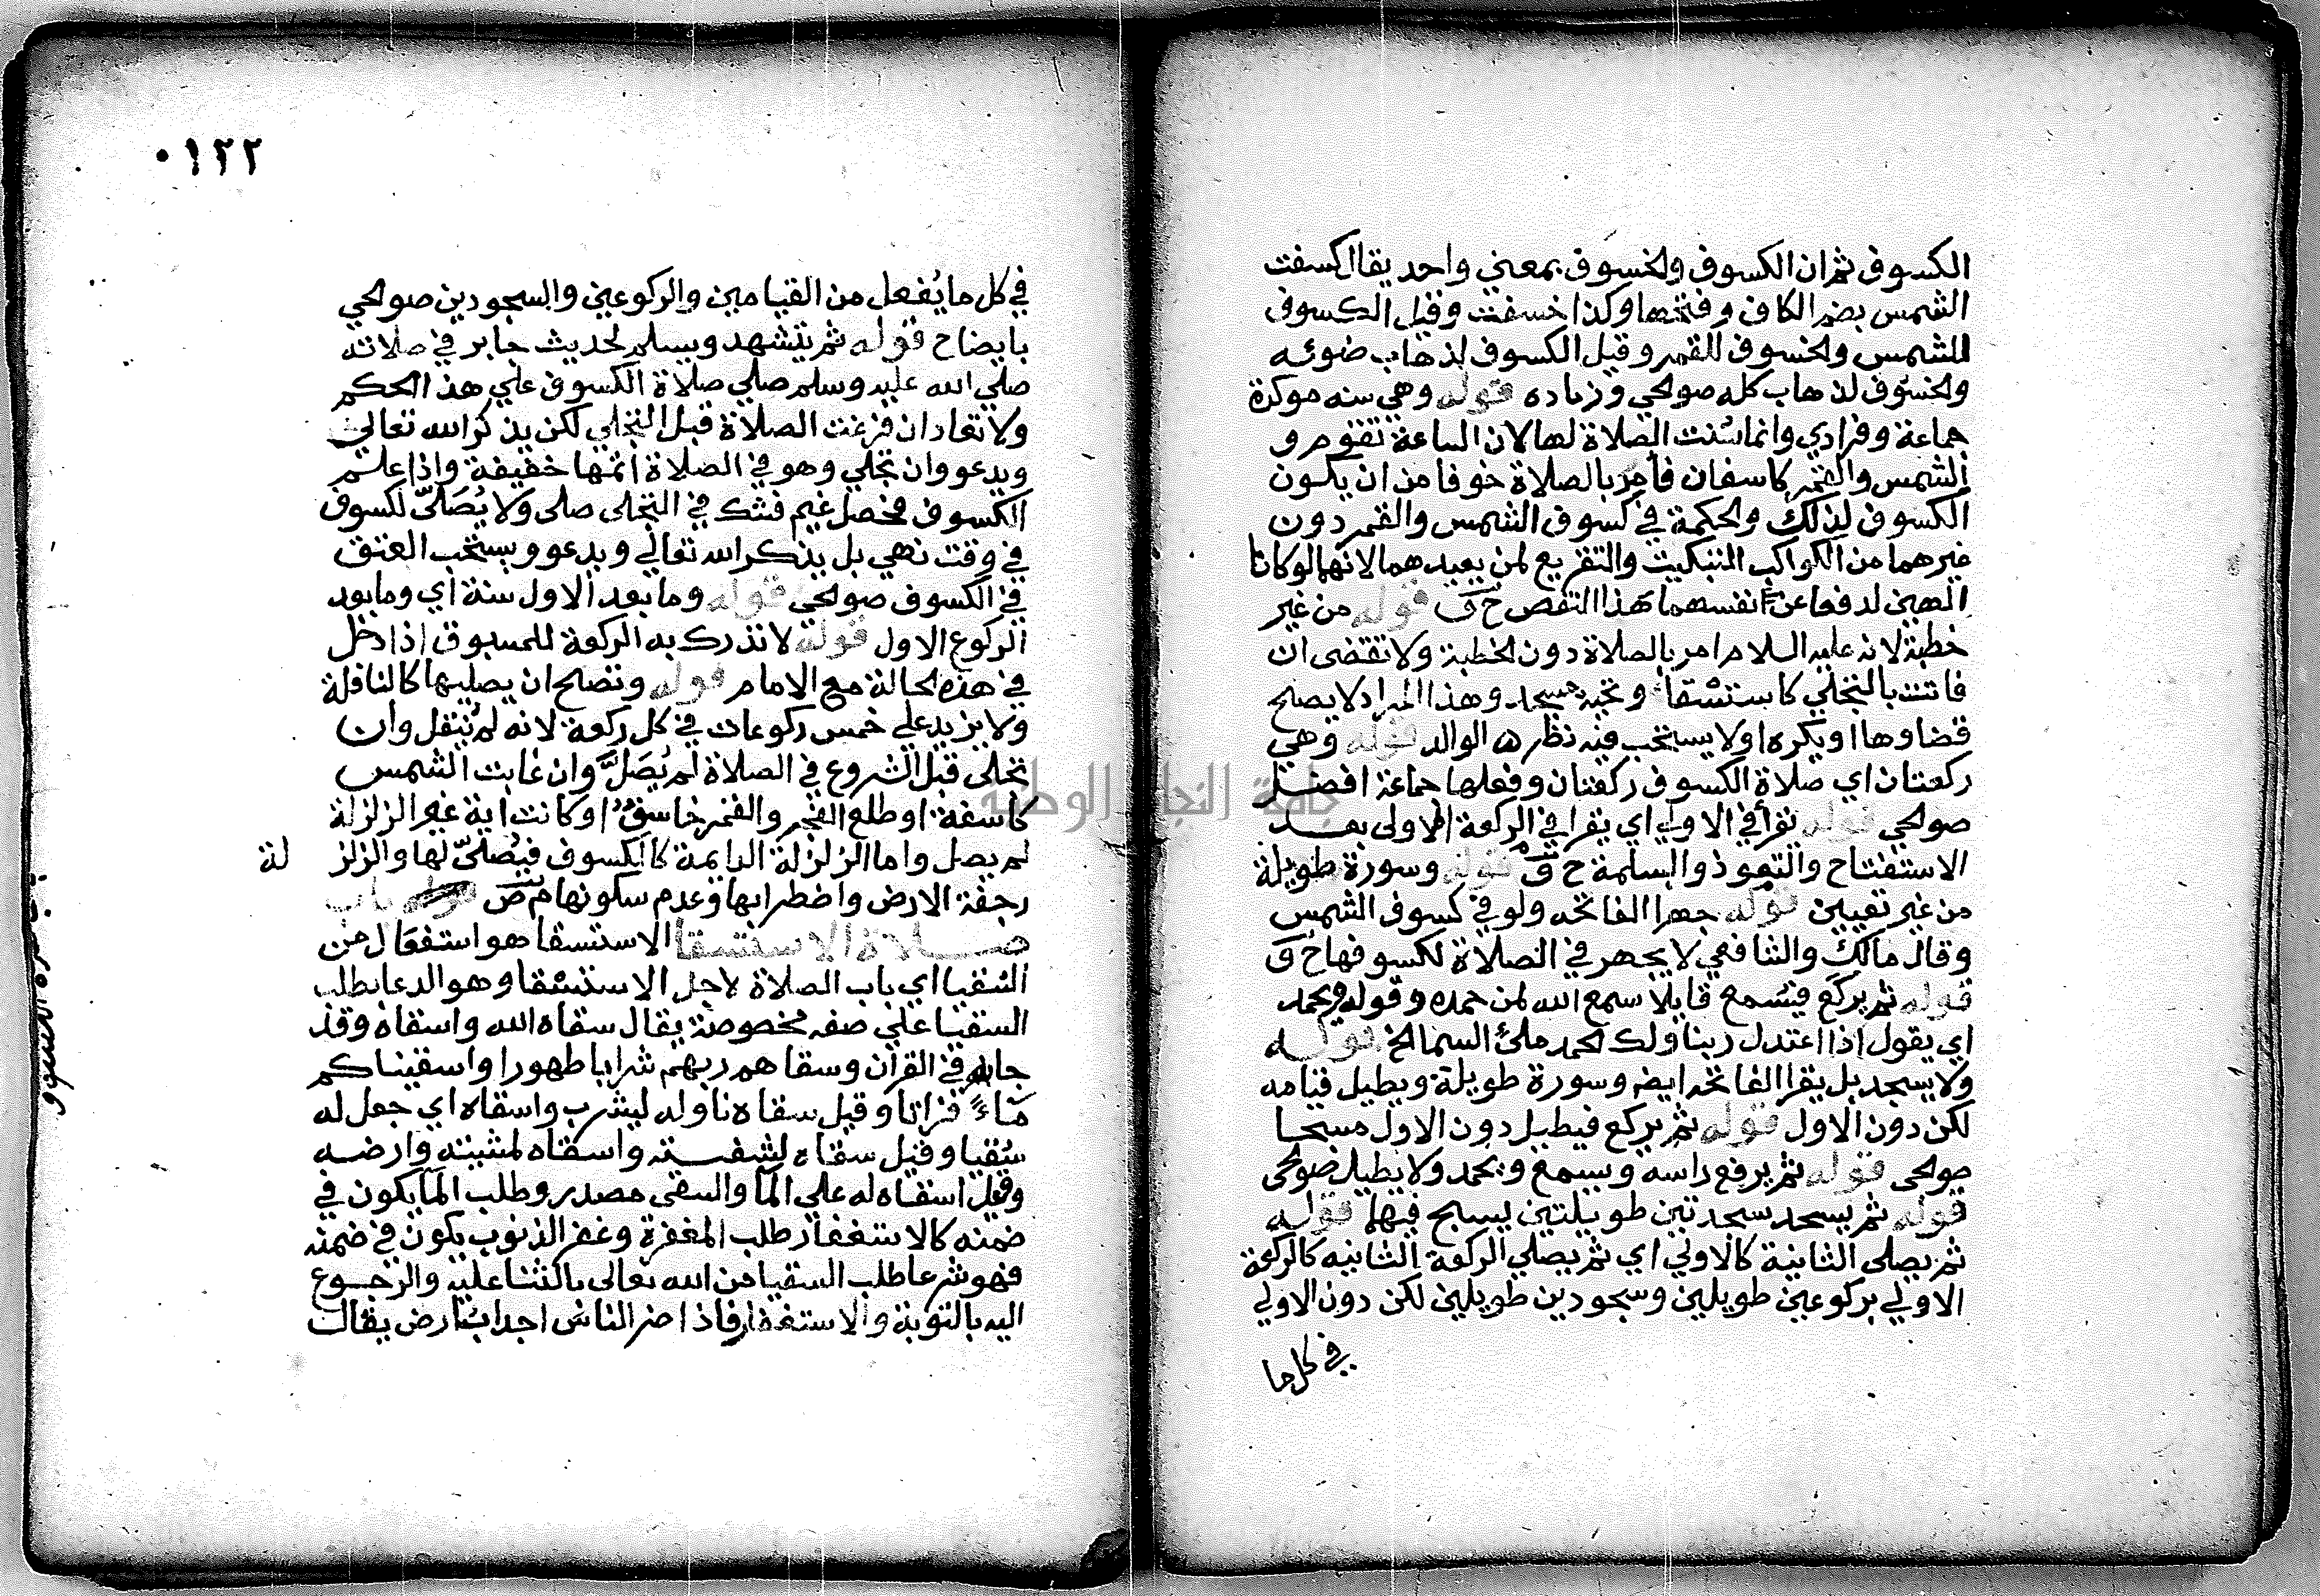 الكسوف ثم ان الكسوف والخسوف بمعني واحد يقال كسفت
الشمس بضم الكاف وفتحها وكذا خسفت وقيل الكسوف
للشمس والخسوف للقمر وقيل الكسوف لذهاب ضوئه
والخسوف لذهاب كله صوالحي وزياده قوله وهي سنه موكدة
جماعة وفرادي وانما سُنت الصلاة لها لان الساعة تقوم و
الشمس والقمر كاسفان فأمر بالصلاة خوفا من ان يكون
الكسوف لذلك والحكمة في كسوف الشمس والقمر دون
غيرهما من الكواكب التبكيت والتقريع لمن يعبدهما لانهما لو كانا
الهين لدفعا عن انفسهما هذا النقص ح ق قوله من غير
خطبة لانه عليه السلام امر بالصلاة دون الخطبة ولا تقضى ان
فاتت بالتجلي كاستسقا وتحية مسجد وهذا المراد لا يصح
قضاوها او يكره او لا يستحب فيه نظر ه الوالد قوله وهي
ركعتان اي صلاة الكسوف ركعتان وفعلها جماعة افضل
صوالحي قوله يقرأ في الاولي اي يقرا في الركعة الاولى بعد
الاستفتاح والتعوذ والبسلمة ح ق قوله وسورة طويلة
من غير تعيين قوله جهرا الفاتحه ولو في كسوف الشمس
وقال مالك والشافعي لا يجهر في الصلاة لكسوفها ح ق
قوله ثم يركع فيسمع قايلا سمع الله لمن حمده وقوله ويحمد
اي يقول اذا اعتدل ربنا ولك الحمد ملئ السما الخ قوله
ولا يسجد بل يقرا الفاتحه ايض وسورة طويلة ويطيل قيامه
لكن دون الاول قوله ثم يركع فيطيل دون الاول مسبحا
صوالحى قوله ثم يرفع راسه ويسمع ويحمد ولا يطيل صوالحى
قوله ثم يسجد سجدتين طويلتين يسبح فيهما قوله
ثم يصلى الثانية كالاولي اي ثم يصلي الركعة الثانيه كالركعة
الاولي بركوعين طويلين وسجودين طويلين لكن دون الاولي
في كل ما
٠١٢٢
في كل ما يُفعل من القيامين والركوعين والسجودين صوالحي
بايضاح قوله ثم يتشهد ويسلم لحديث جابر في صلاته
صلي الله عليه وسلم صلي صلاة الكسوف علي هذ الحكم
ولا تعاد ان فرغت الصلاة قبل التجلي لكن يذكر الله تعالي
ويدعو وان تجلي وهو في الصلاة اتمها خفيفة واذا علم
الكسوف فحصل غيم فشك في التجلى صلى ولا يُصَلّى لكسوف
في وقت نهي بل يذكر الله تعالي ويدعو ويستحب العتق
في الكسوف صوالحي قوله وما بعد الاول سنة اي وما بعد
الركوع الاول قوله لا تدرك به الركعة للمسبوق اذا دخل
في هذه الحالة مع الامام قوله وتصح ان يصليها كالنافلة
ولا يزيد علي خمس ركوعات في كل ركعة لانه لم يُنقل وان
تجلى قبل الشروع في الصلاة لم يُصَلَّ وان غابت الشمس
كاسفة او طلع الفجر والقمر خاسفٌ او كانت اية غير الزلزلة
لم يصل واما الزلزلة الدايمة كالكسوف فيُصلىّ لها والزلز لة
رجفة الارض واضطرابها وعدم سكونها م ص قوله باب
صلاة الاستسقا الاستسقا هو استفعال من
السُقيا اي باب الصلاة لاجل الاستسقا وهو الدعا بطلب
السقيا علي صفه مخصوصة يقال سقاه الله واسقاه وقد
جا في القرآن وسقاهم ربهم شرابا طهورا واسقيناكم
مَاءً فراتا وقيل سقاه ناوله ليشرب واسقاه اي جعل له
سُقيا وقيل سقاه لشفته واسقاه لمشيته وارضه
وقيل اسقاه له علي المآ والسقى مصدر وطلب المآ يكون في
ضمنه كالاستغفار طلب المغفرة وغفر الذنوب يكون في ضمنه
فهو شرعا طلب السقيا من الله تعالى بالثنا عليه والرجوع
اليه بالتوبة والاستغفار فاذا ضر الناس اجداب ارض يقال